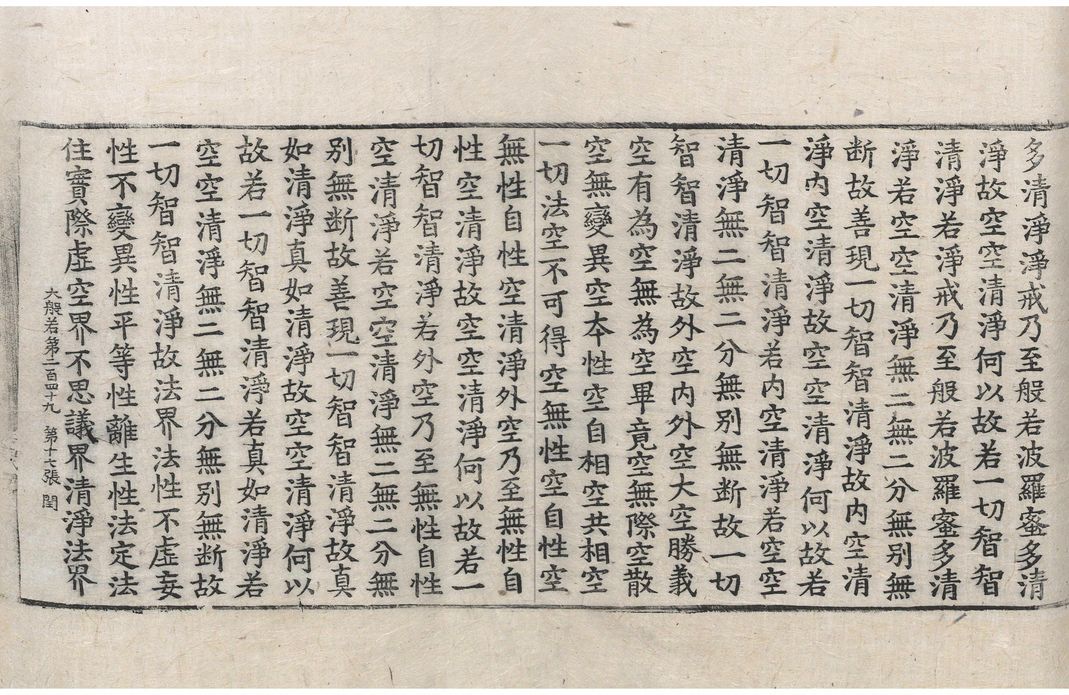 多清淨淨戒乃至般若波羅蜜多清
淨故空空清淨何以故若一切智智
清淨若淨戒乃至般若波羅蜜多清
淨若空空清淨無二無二分無別無
断故善現一切智智清淨故內空清
淨內空清淨故空空清淨何以故若
一切智智清淨若內空清淨若空空
清淨無二無二分無別無断故一切
智智清淨故外空內外空大空勝義
空有為空無為空畢竟空無際空散
空無變異空本性空自相空共相空
一切法空不可得空無性空自性空
無性自性空清淨外空乃至無性自
性空清淨故空空清淨何以故若一
切智智清淨若外空乃至無性自性
空清淨若空空清淨無二無二分無
別無断故善現一切智智清淨故真
如清淨真如清淨故空空清淨何以
故若一切智智清淨若真如清淨若
空空清淨無二無二分無別無断故
一切智智清淨故法界法性不虛妄
性不變異性平等性離生性法定法
住實際虛空界不思議界清淨法界
大般若第二百四十九 第十七張 閏